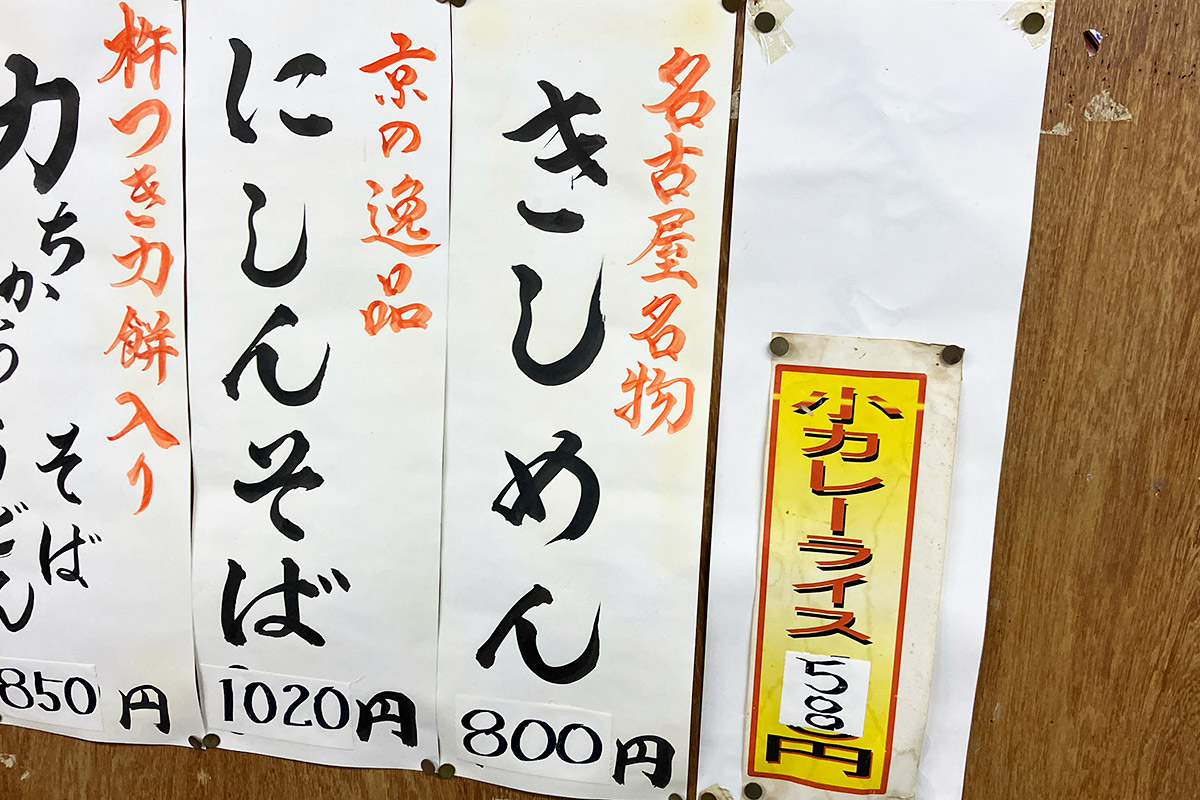 名古屋名物
きしめん
800円
京の逸品
にしんそば
1020円
杵つき力餅入り
力
ちから
そば
うどん
850円
小カレーライス
500円